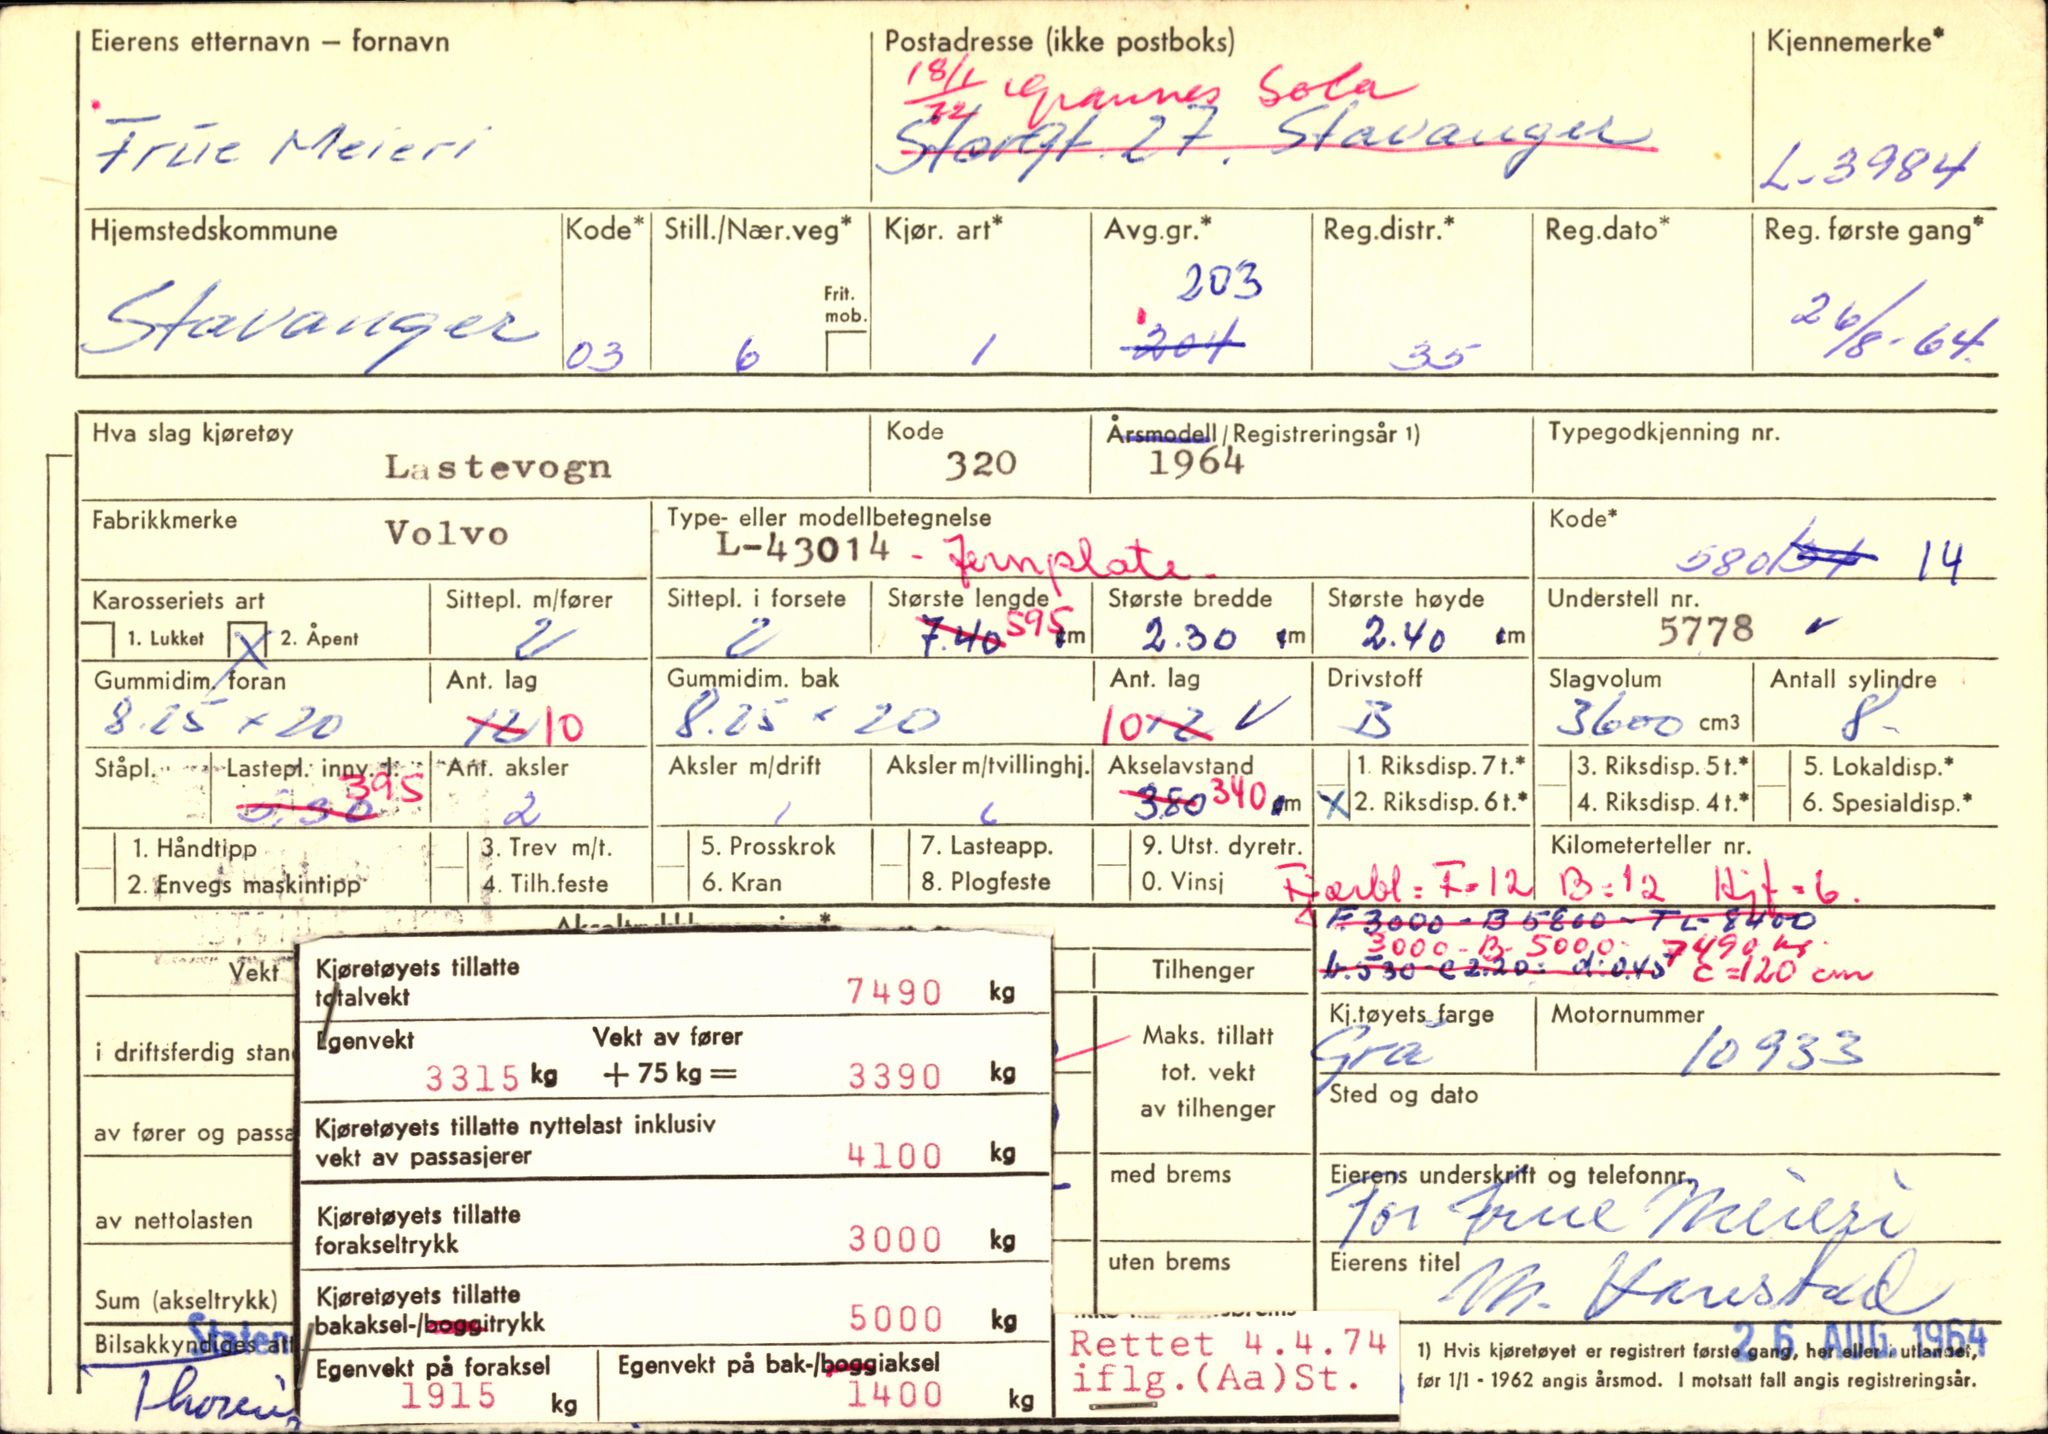 Eierens etternavn – fornavn
Postadresse (ikke postboks)
Kjennemerke*
18/1 72 Grannes Sola
Frue Meieri
Storgt. 27. Stavanger
L-3984
Hjemstedskommune
Kode*
Still./Nær.veg*
Kjør. art*
Avg.gr.*
Reg.distr.*
Reg.dato*
Reg. første gang*
203
Frit. mob.
Stavanger
03
6
1
204
35
26/8-64.
Hva slag kjøretøy
Kode
Årsmodell/Registreringsår 1)
Typegodkjenning nr.
Lastevogn
320
1964
Fabrikkmerke
Volvo
Type- eller modellbetegnelse
L-43014 - Jernplate.
Kode*
580 14
Karosseriets art
Sittepl. m/fører
Sittepl. i forsete
Største lengde
Største bredde
Største høyde
Understell nr.
1. Lukket
X 2. Åpent
2
2
7.40 595 cm
2.30 cm
2.40 cm
5778
Gummidim. foran
Ant. lag
Gummidim. bak
Ant. lag
Drivstoff
Slagvolum
Antall sylindre
8.25 x 20
12 10
8.25 x 20
10 12
B
3600 cm3
8-
Ståpl.
Lastepl. innv. l.
Ant. aksler
Aksler m/drift
Aksler m/tvillinghj.
Akselavstand
1. Riksdisp. 7 t.*
3. Riksdisp. 5 t.*
5. Lokaldisp.*
5.30 395
2
1
380 340 cm
X 2. Riksdisp. 6 t.*
4. Riksdisp. 4 t.*
6. Spesialdisp.*
1. Håndtipp
3. Trev m/t.
5. Prosskrok
7. Lasteapp.
9. Utst. dyretr.
Kilometerteller nr.
2. Envegs maskintipp
4. Tilh.feste
6. Kran
8. Plogfeste
0. Vinsj
Fjærbl = F=12 B=12 Hjf=6.
F 3000 - B 5800 - TL - 8400
3000 - B- 5000- 7490 kg.
b.530 - c 2.20 - d:0.45 c=120 cm
Vekt
Tilhenger
Kjøretøyets tillatte totalvekt 7490 kg
Kj.tøyets farge
Motornummer
Grå
10933
i driftsferdig stand
Egenvekt 3315 kg
Vekt av fører + 75 kg = 3390 kg
Maks. tillatt
tot. vekt
av tilhenger
Sted og dato
av fører og passa
Kjøretøyets tillatte nyttelast inklusiv
vekt av passasjerer 4100 kg
med brems
Eierens underskrift og telefonnr.
For Frue Meieri
av nettolasten
Kjøretøyets tillatte
forakseltrykk 3000 kg
uten brems
Eierens titel
Sum (akseltrykk)
Kjøretøyets tillatte
bakaksel-/boggitrykk 5000 kg
Bilsakkyndiges att
Staten
26 AUG. 1964
Egenvekt på foraksel
1915 kg
Egenvekt på bak-/boggiaksel
1400 kg
Rettet 4.4.74
iflg.(Aa)St.
1) Hvis kjøretøyet er registrert første gang, her eller i utlandet,
før 1/1 - 1962 angis årsmod. I motsatt fall angis registreringsår.